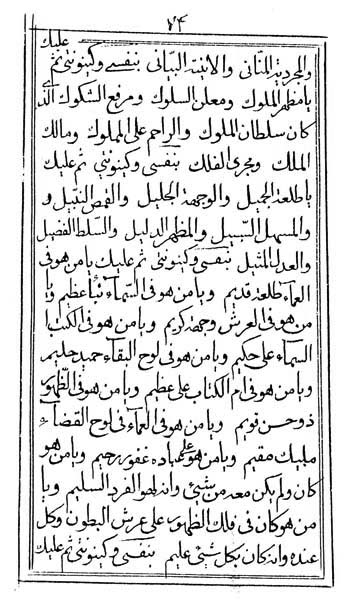 ٢٤
عليك
والمجردية المنانى والانيتة البيانى بنفسى وكينونتى ثم
يا مظهر الملوك ومعلن السلوك ومرفع الشكوك الذى
كان سلطان الملوك والراحم على المملوك ومالك
الملك ومجرى الفلك بنفسى وكينونتى ثم عليك
يا طلعة الجميل والوجهة الجليل والقمص النبيل و
والمسهل السبيل والمظهر الدليل والسلط الفضيل
والعدل المثيل بنفسى وكينونتى ثم عليك يا من هو فى
العماء طلعة قديم ويا من هو فى السماء نبأ عظيم ويا
من هو فى العرش وجهة كريم ويا من هو فى الكتب
السماء على حكيم ويا من هو فى لوح البقاء حميد حليم
ويا من هو فى ام الكتاب على عظيم ويا من هو فى الظهور
ذو حسن قويم ويا من هو فى العماء فى لوح القضاء
مليك مقيم ويا من هو على عباده غفور رحيم ويا من هو
كان ولم يكن معه من شىء وانه لهو الفرد السليم ويا
من هو كان فى فلك الظهور على عرش البطون وكل
عنده وانه كان بكل شىء عليم بنفسى وكينونتى ثم عليك